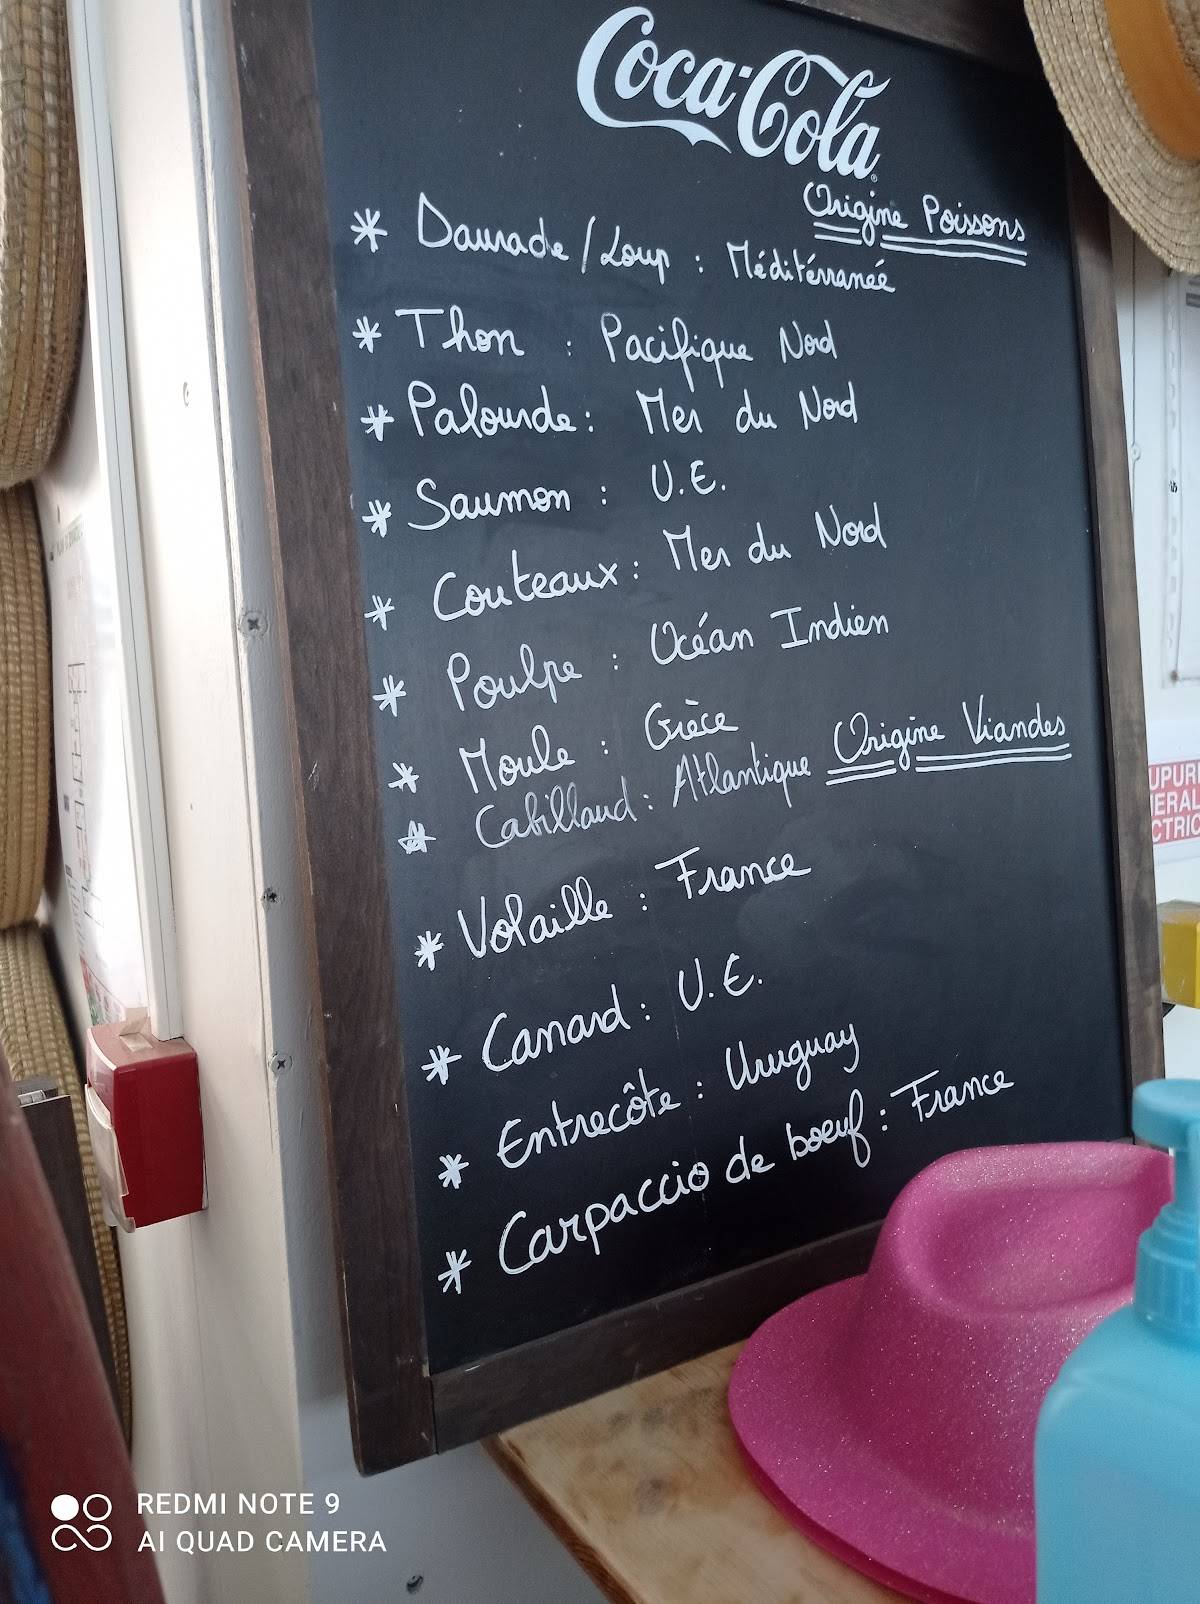 Coca-Cola
Origine Poissons
* Daurade / Loup : Méditérranéé
* Thon : Pacifique Nord
* Palourde : Mer du Nord
* Saumon : U.E.
* Couteaux : Mer du Nord
* Poulpe : Océan Indien
* Moule : Grèce
* Cabillaud : Atlantique
Origine Viandes
* Volaille : France
* Canard : U.E.
* Entrecôte : Uruguay
* Carpaccio de boeuf : France
REDMI NOTE 9
AI QUAD CAMERA